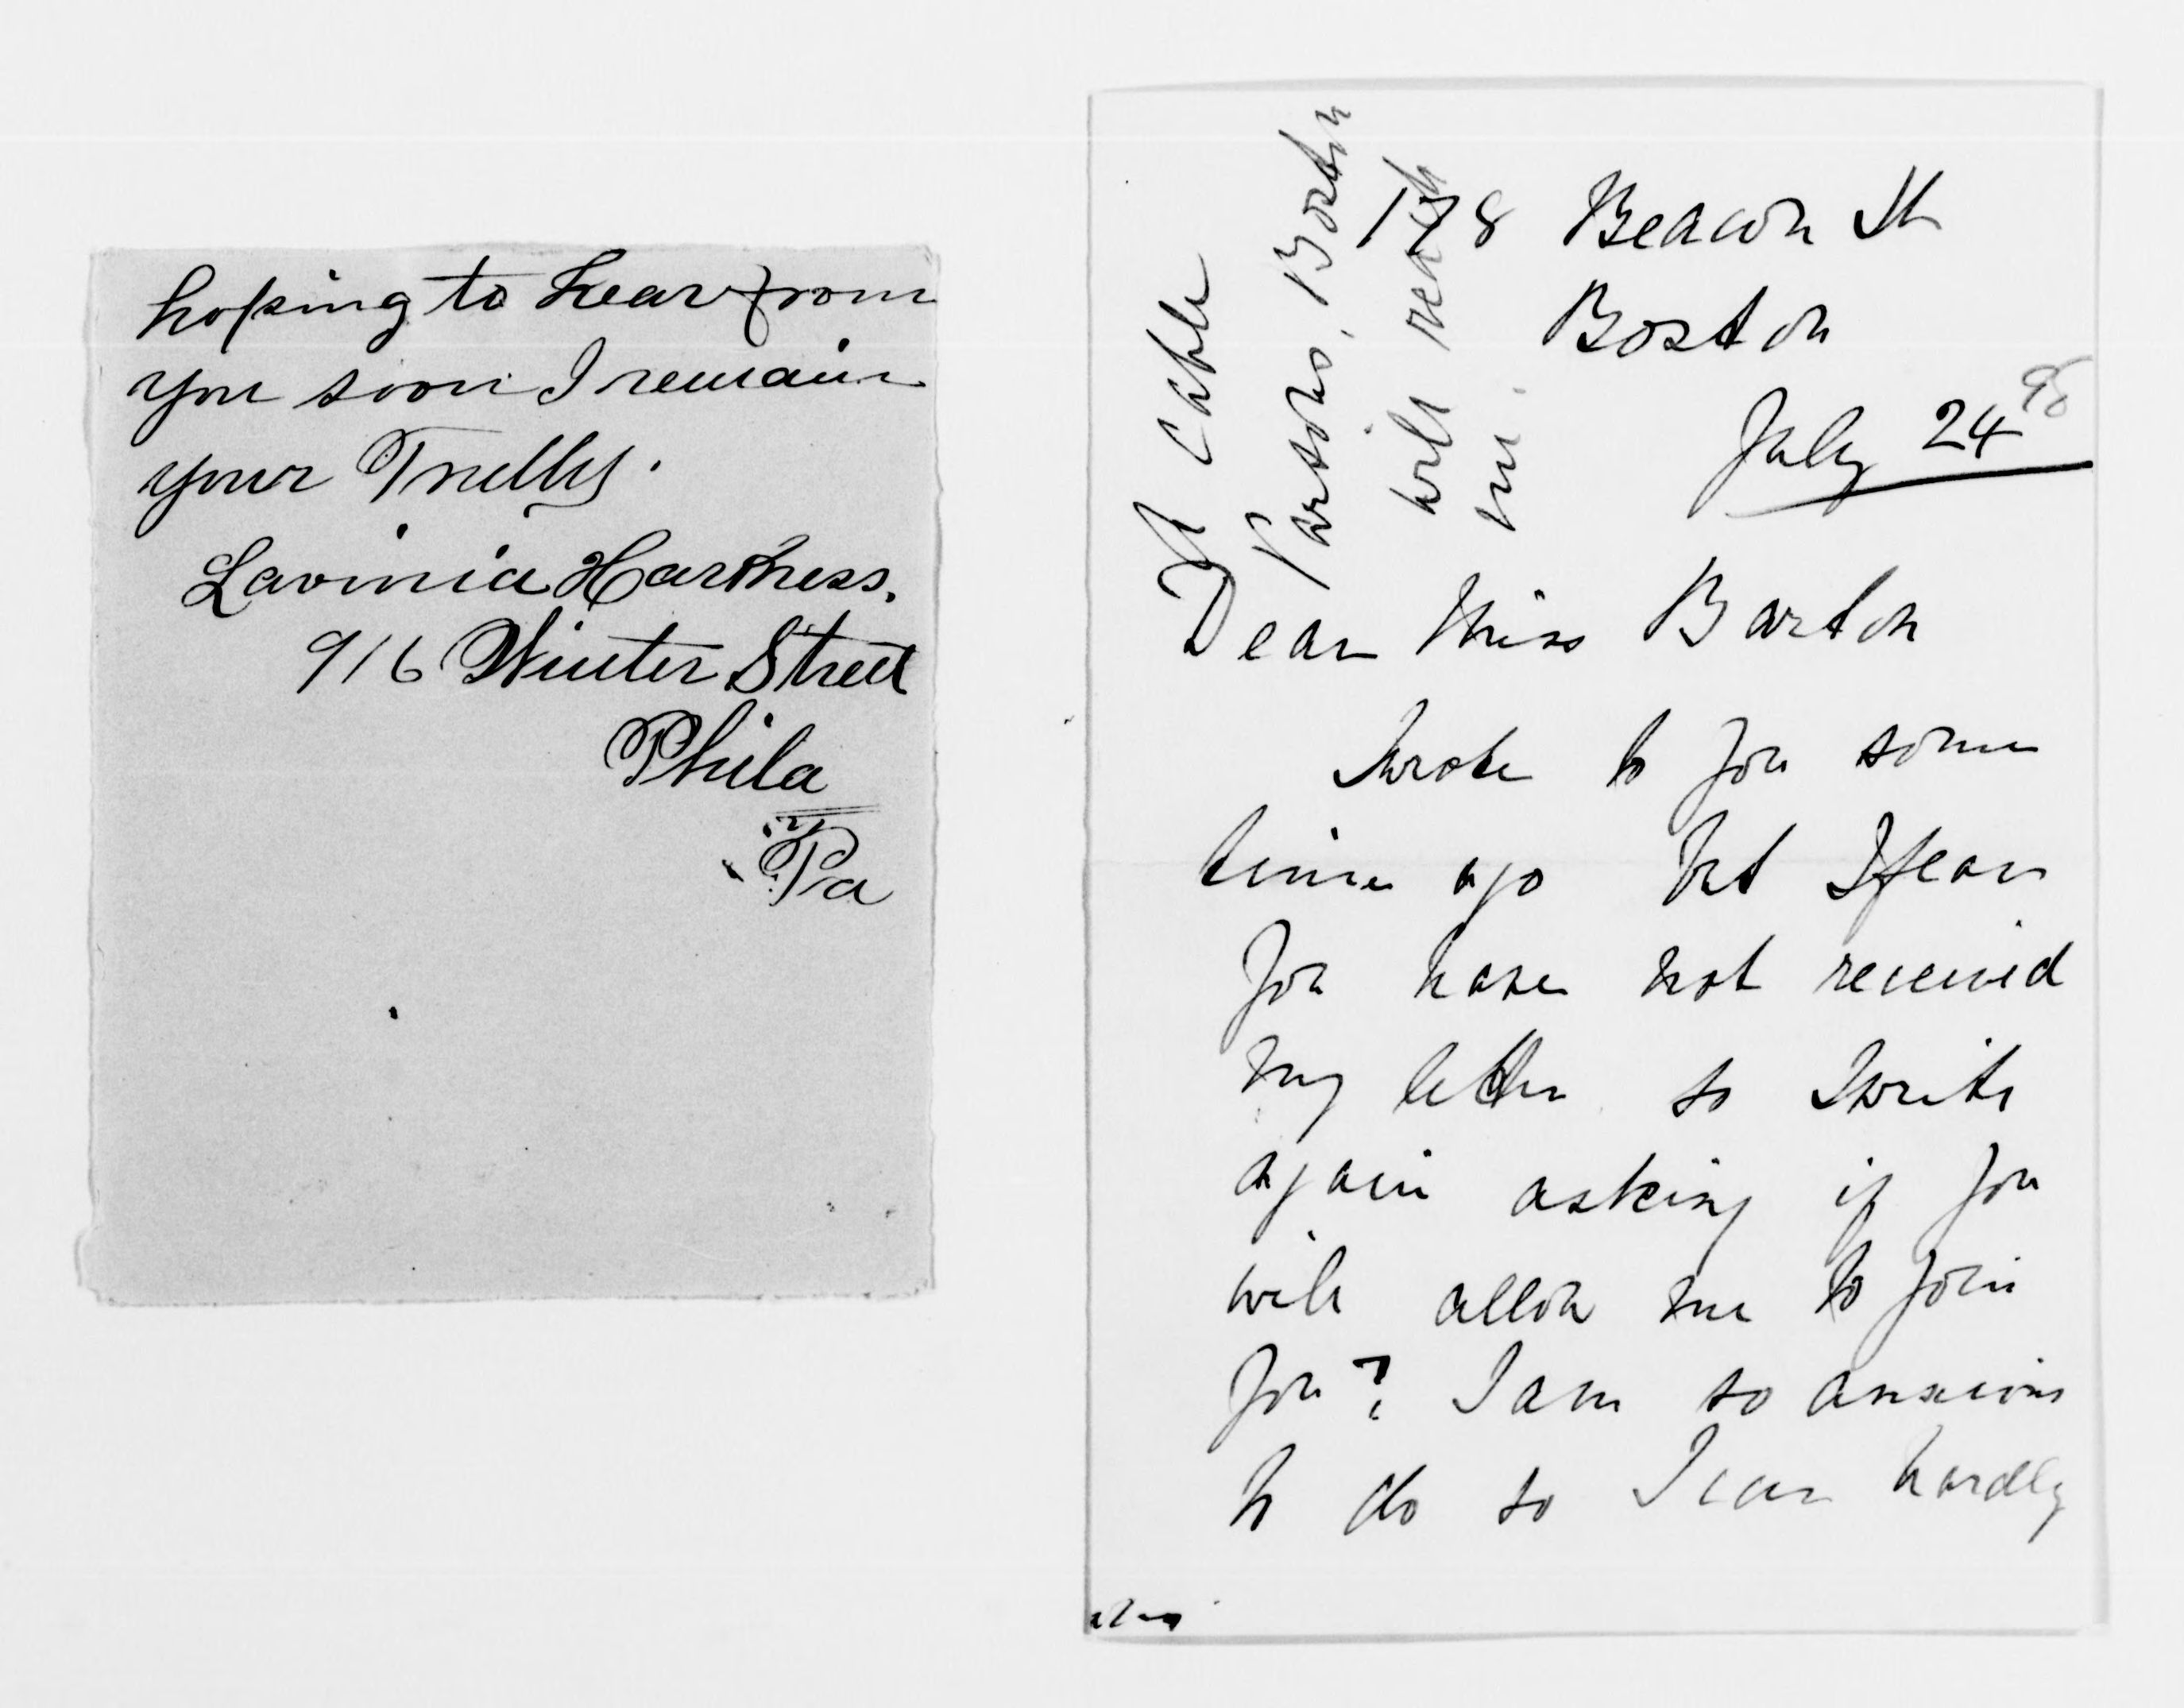 hoping to hear from
you soon I remain
your Trully.
Lavinia Harkness.
916 Winter Street
Phila
Pa
A Cable
Parsons, Boston
will reach
me.
178 Beacon St
Boston
July 24 98
Dear Miss Barton
I wrote to you some
time ago but I fear
you have not received
my letter so I write
again asking if you
will allow me to join
you? I am so anxious
to do so I can hardly